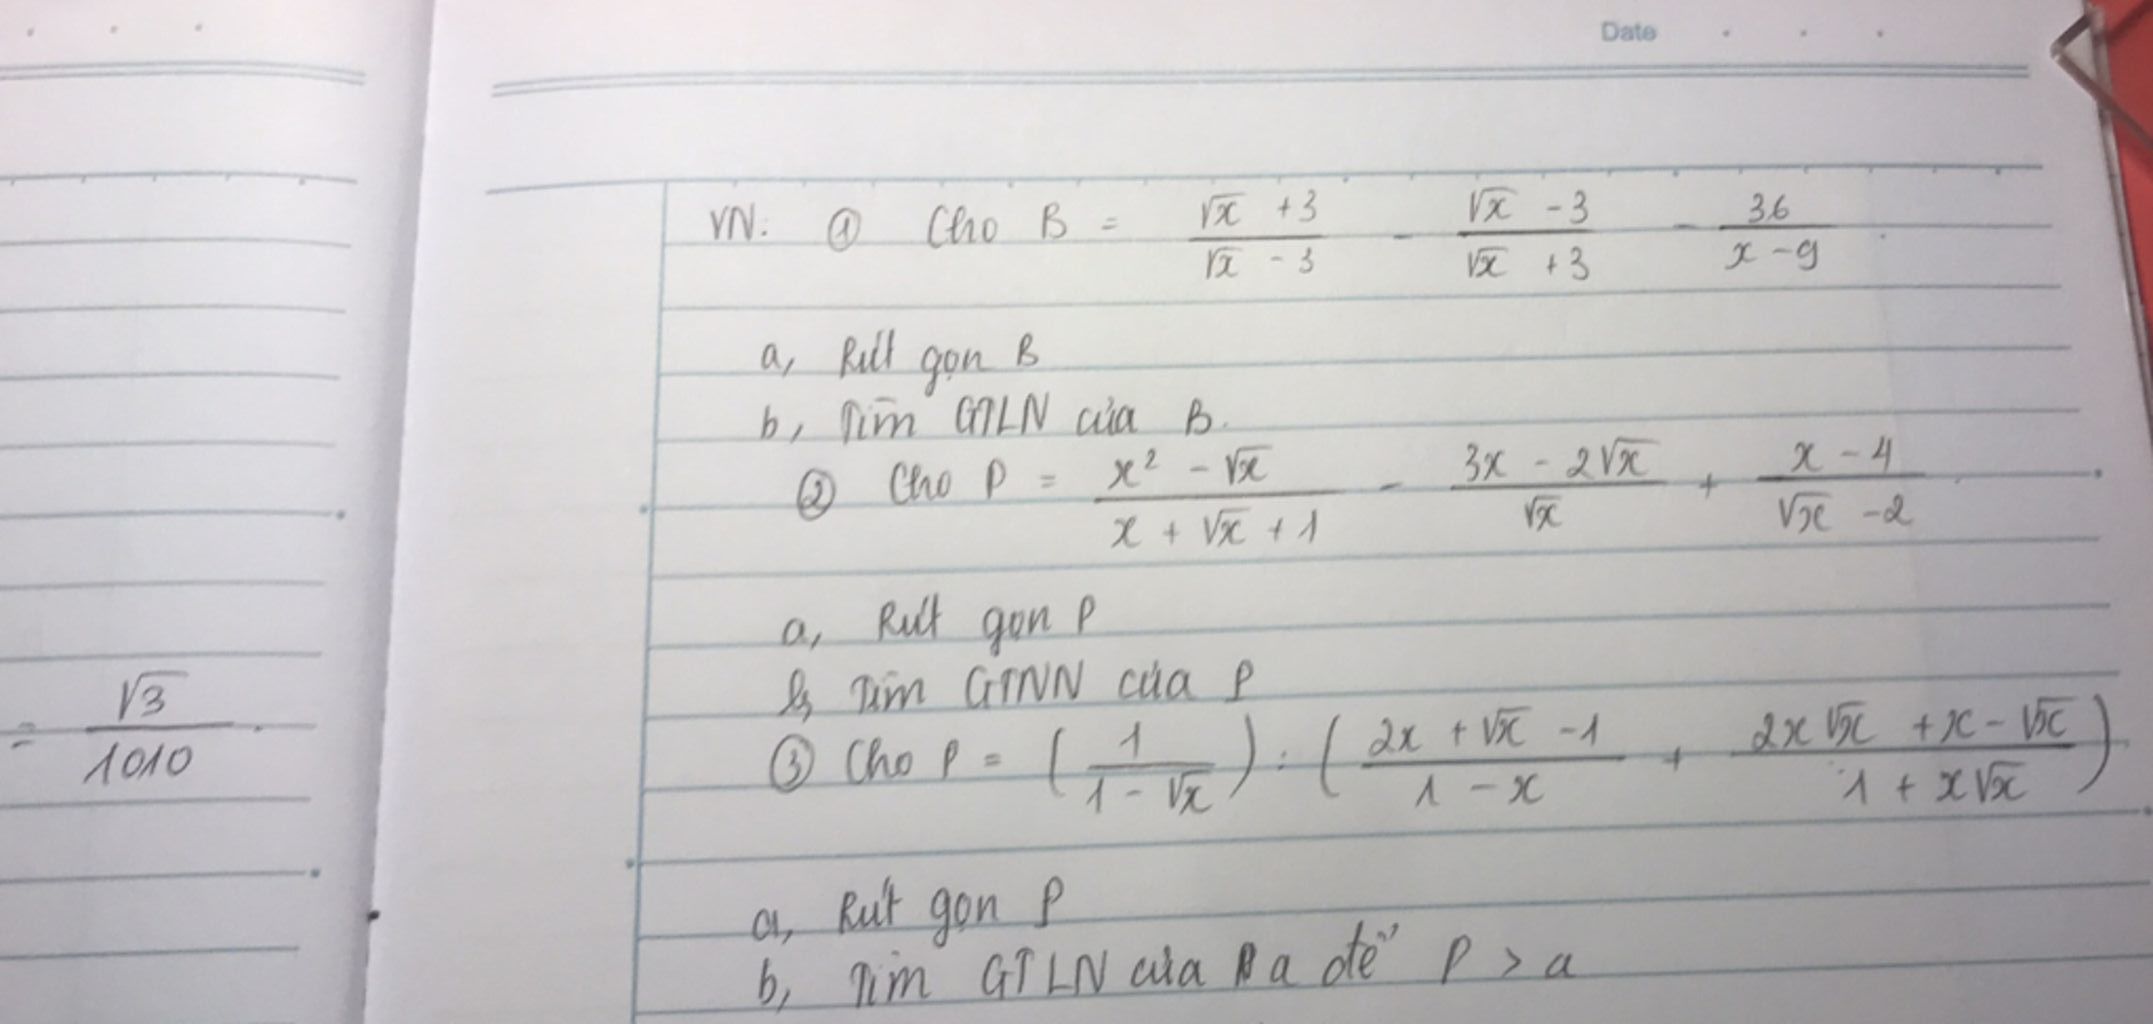 Date
VN: ① Cho B = (√x + 3)/(√x - 3) - (√x - 3)/(√x + 3) - 36/(x - 9)
a, Rút gọn B
b, Tìm GTLN của B.
② Cho P = (x² - √x)/(x + √x + 1) - (3x - 2√x)/√x + (x - 4)/(√x - 2)
a, Rút gọn P
b, Tìm GTNN của P
= √3/1010
③ Cho P = (1/(1 - √x)) : ((2x + √x - 1)/(1 - x) + (2x√x + x - √x)/(1 + x√x))
a, Rút gọn P
b, Tìm GTLN của a để P > a